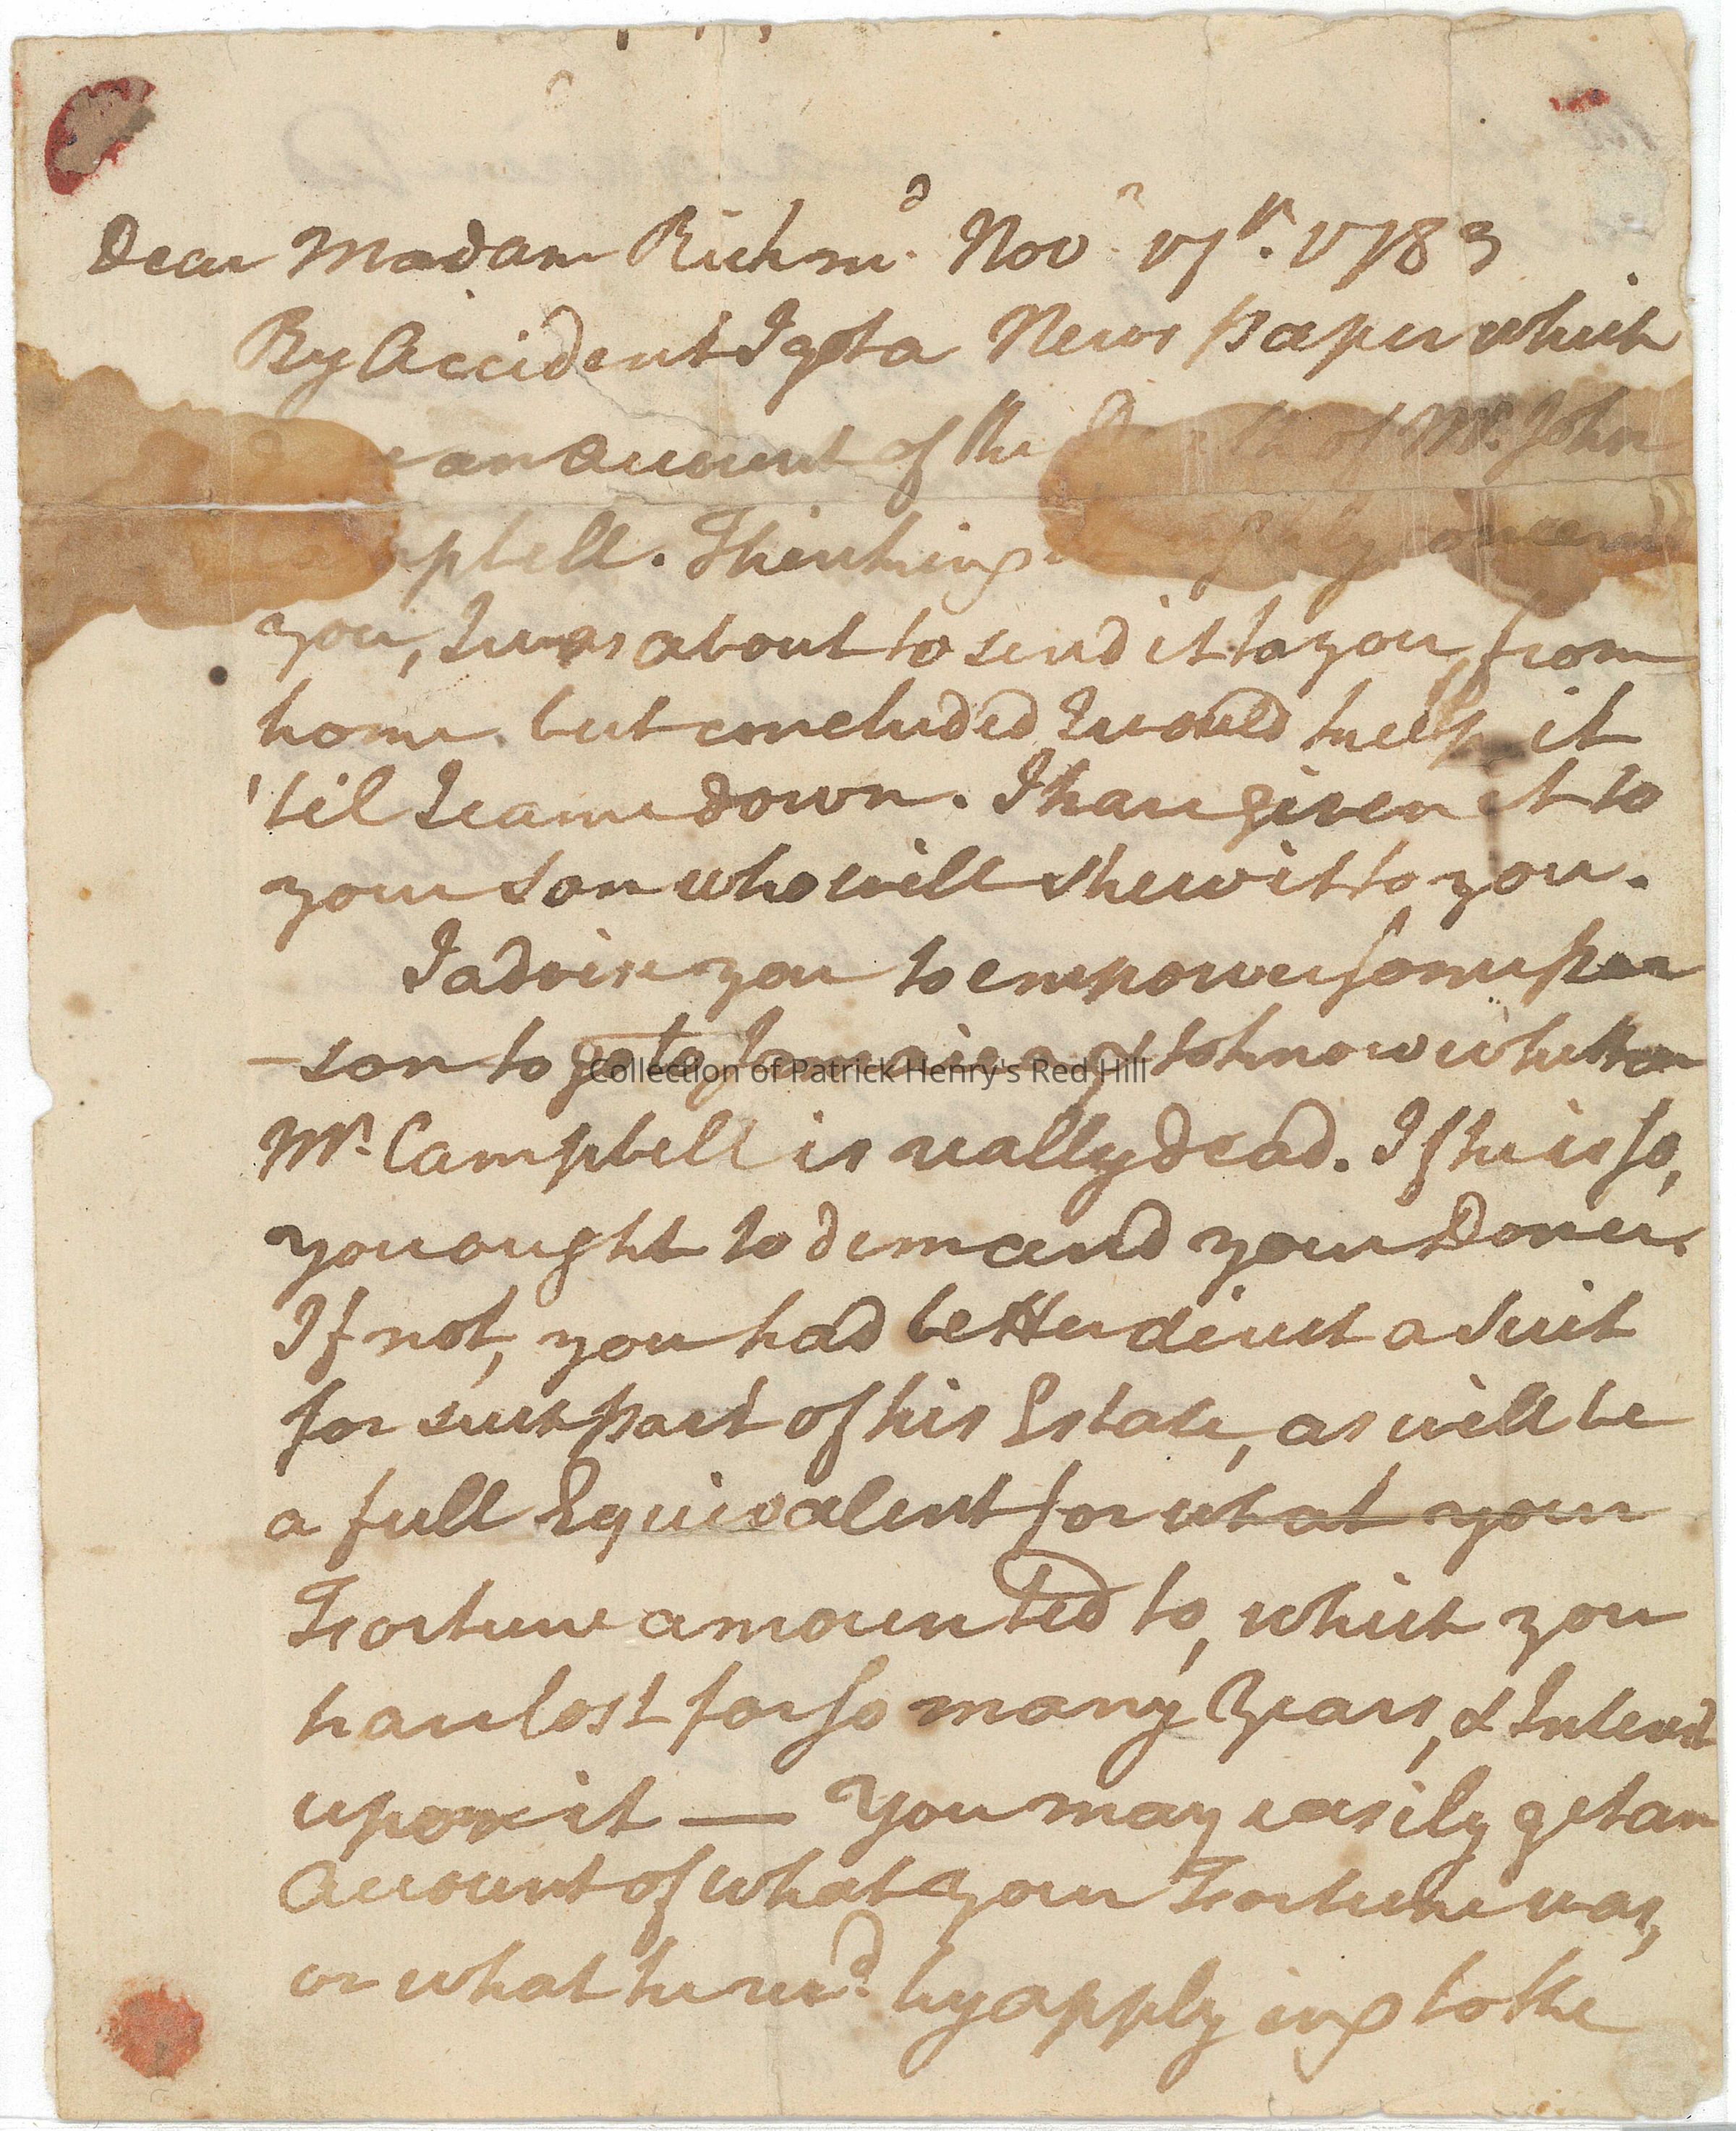 Dear Madam Richmd. Novr. 17th. 1783
By Accident I got a News paper which
an account of the Death of Mr. John
Campbell. Thinking highly concern'd
you, I was about to send it to you from
home but concluded I would keep it
'til I came down. I have given it to
your son who will shew it to you.
I advise you to empower some per
-son to go to Jamaica & to know whether
Collection of Patrick Henry's Red Hill
Mr. Campbell is really dead. If he is so,
you ought to demand your Dower.
If not, you had better direct a Suit
for such part of his Estate, as will be
a full Equivalent for what your
Fortune amounted to, which you
have lost for so many Years, & Interest
upon it — You may easily get an
Account of what your Fortune was,
or what he recd. by applying to the